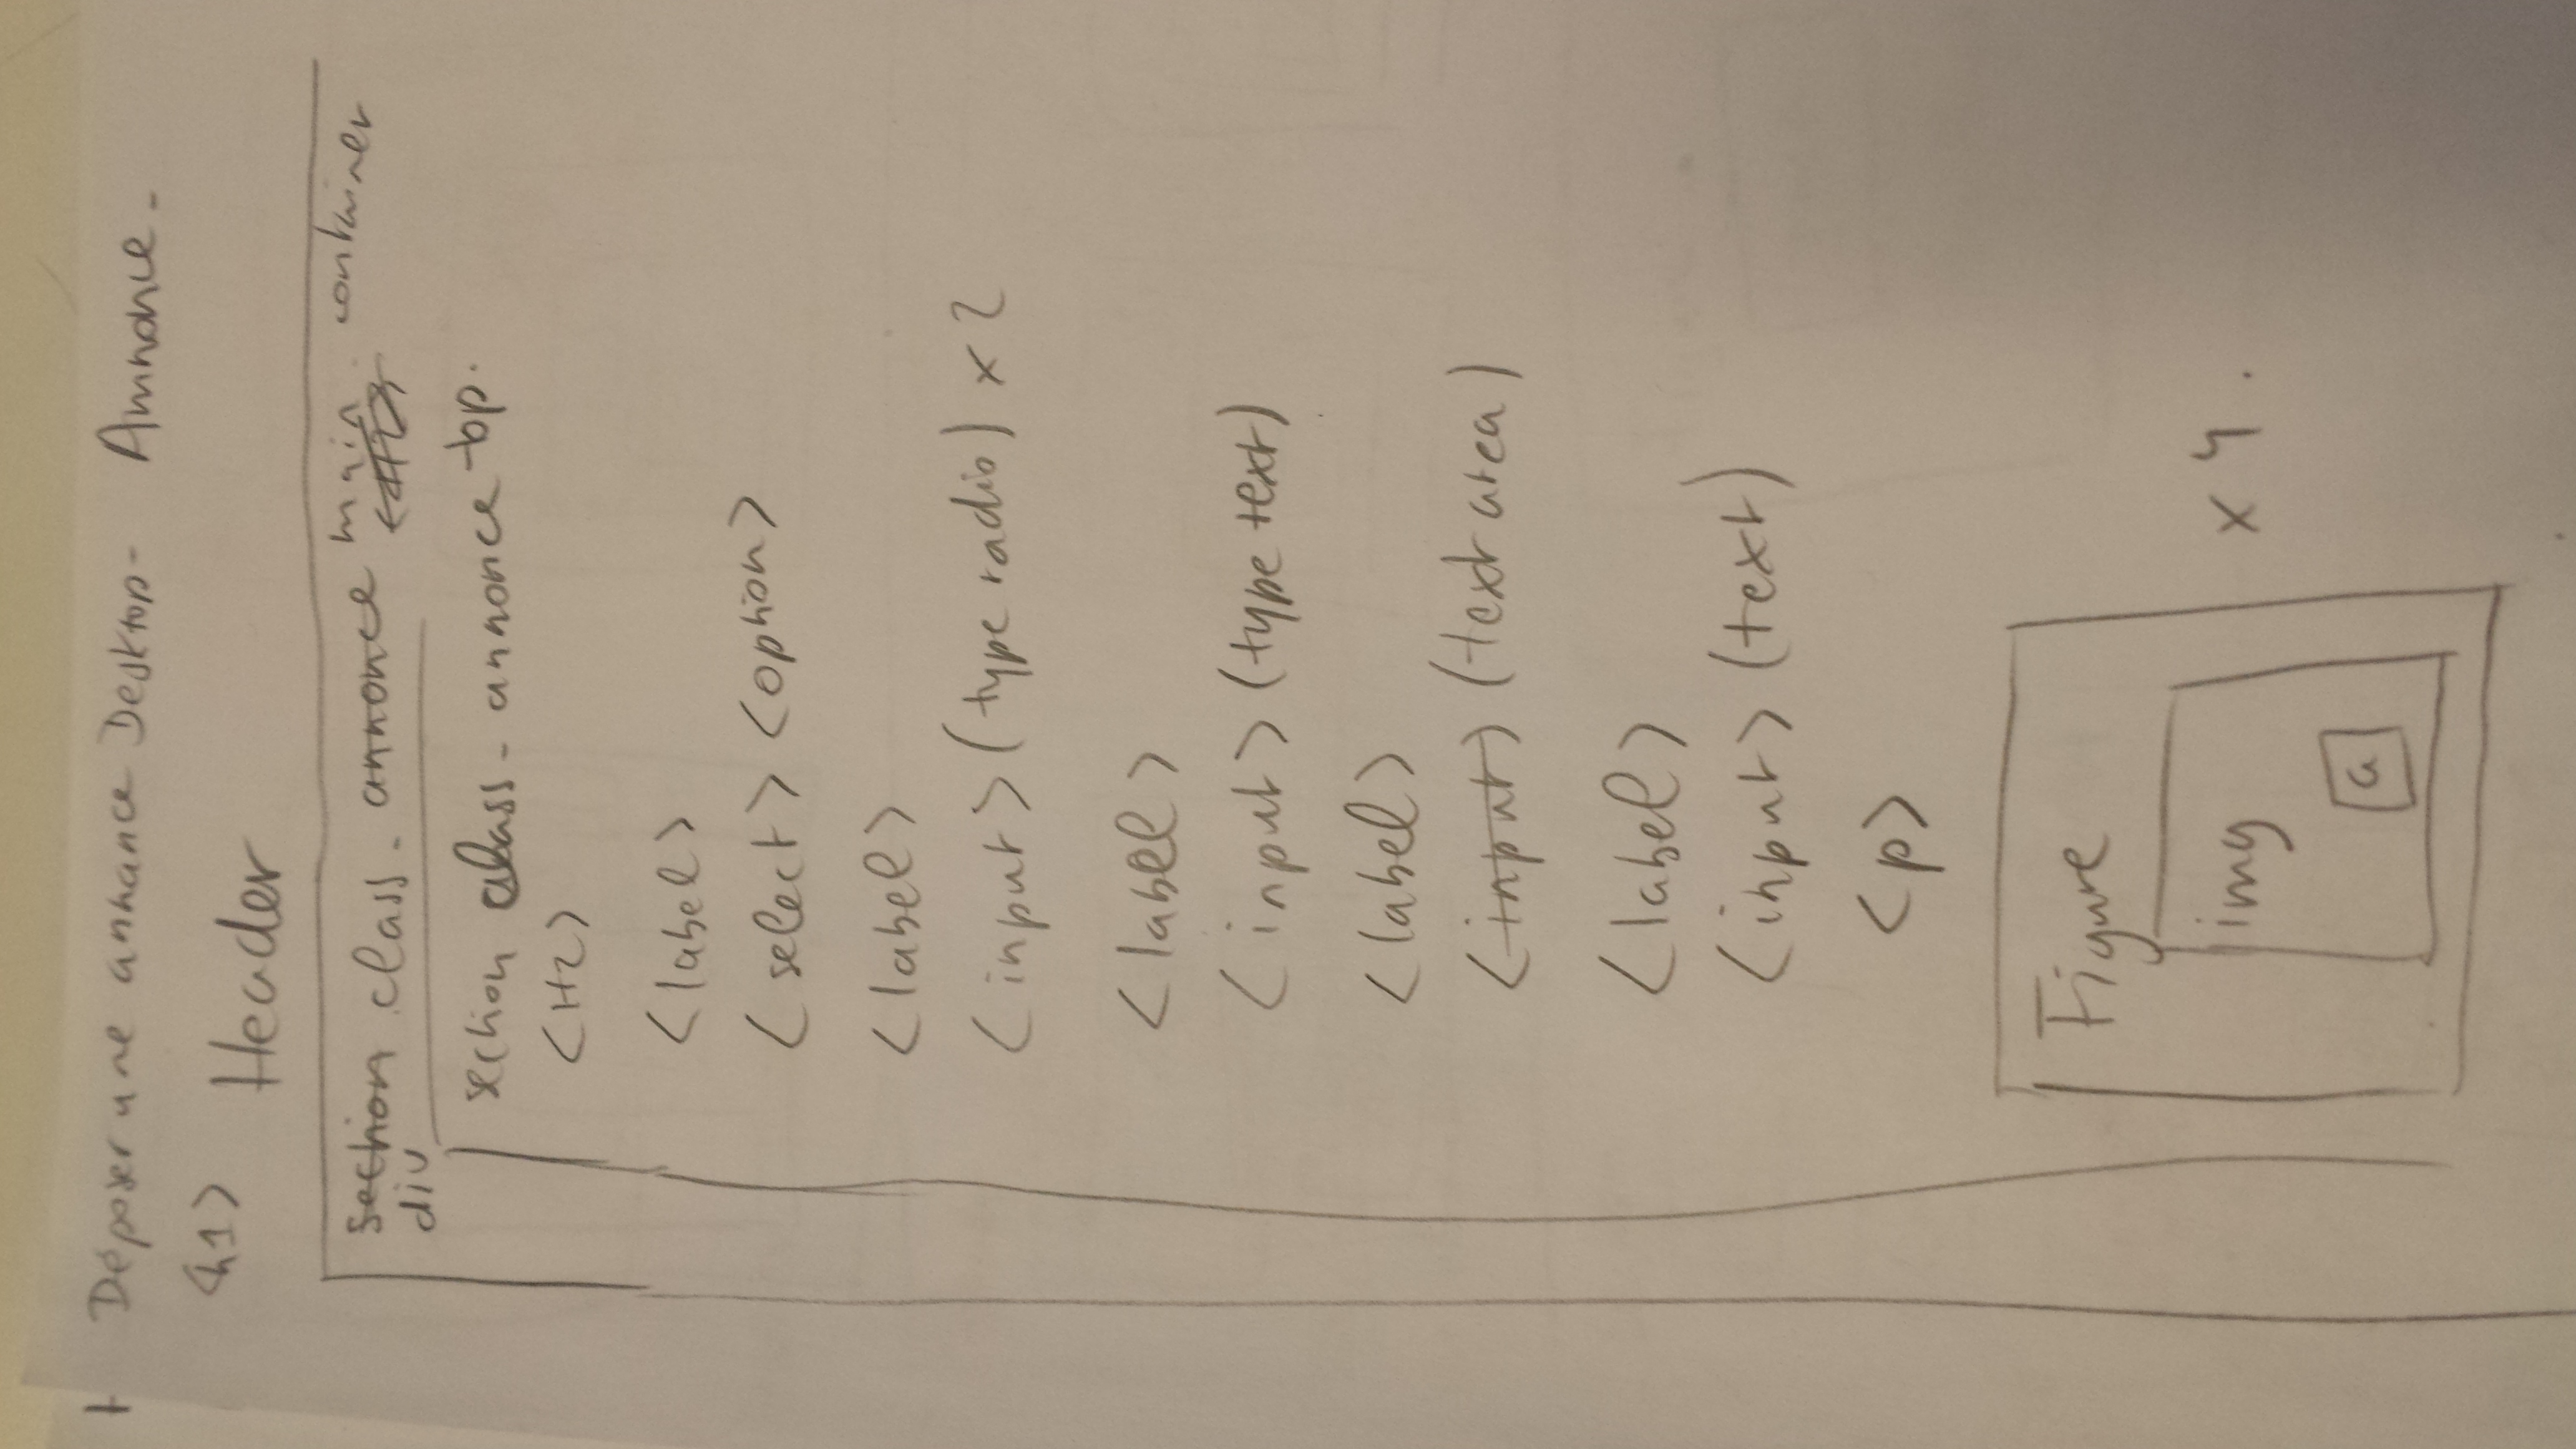 Déposer une annonce Desktop - Annonce -
<h1> Header
section class - annonce main container
div
section class - annonce top.
<H2>
<label>
<select> <option>
<label>
<input> (type radio) x 2
<label>
<input> (type text)
<label>
<input> (text area)
<label>
<input> (text)
<p>
Figure
img
x 4.
a